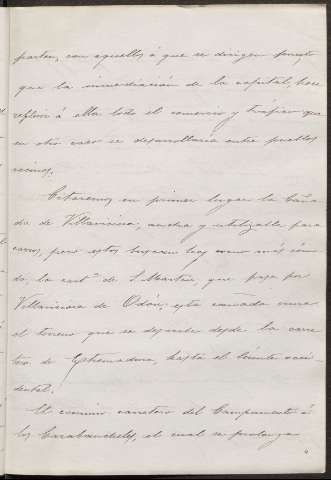 parten, con aquellos á que se dirigen puesto
que la inmediación de la capital, hace
refluir á ella todo el comercio y tráfico que
en otro caso se desarrollaria entre pueblos
vecinos.
Citaremos en primer lugar la Caña-
da de Villaviciosa, ancha y utilizable para
carros, pero estos buscan hoy como más cómo-
do, la carrª de S. Martin, que pasa por
Villaviciosa de Odón; esta cañada cruza
el terreno que se describe desde la carre
tera de Estremadura, hasta el límite occi-
dental.
Un camino carretero del Campamento á
los Carabancheles, el cual se prolonga